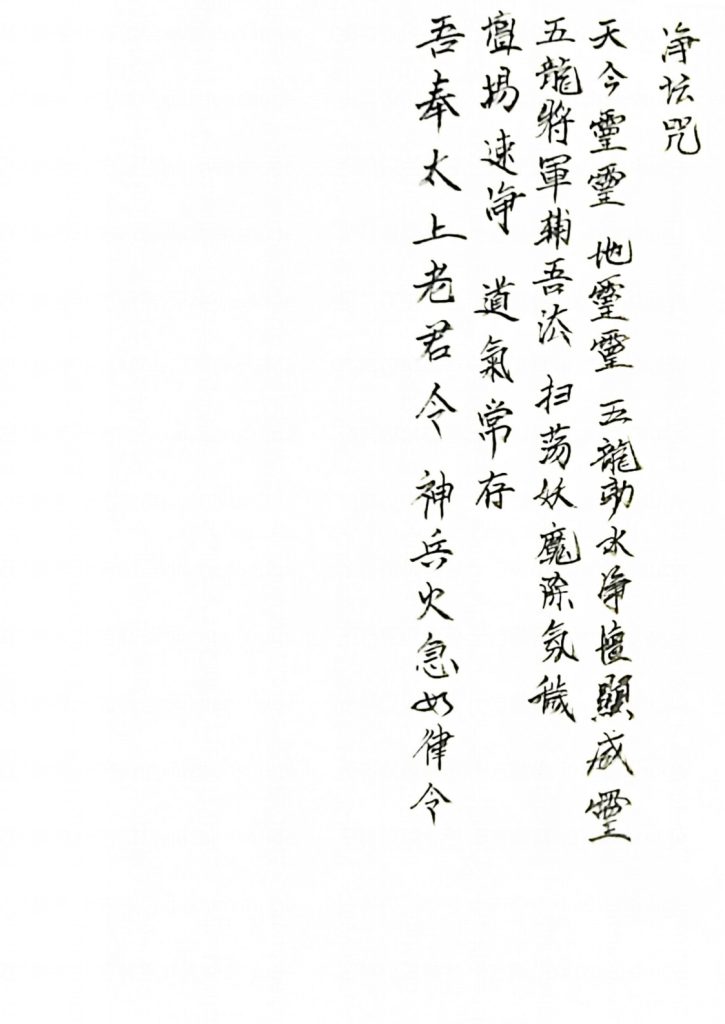 净坛咒
天今靈靈 地靈靈 五龍助水净壇顯威靈
五龍將軍輔吾法 扫荡妖魔除氛穢
壇場速净 道氣常存
吾奉太上老君令 神兵火急如律令